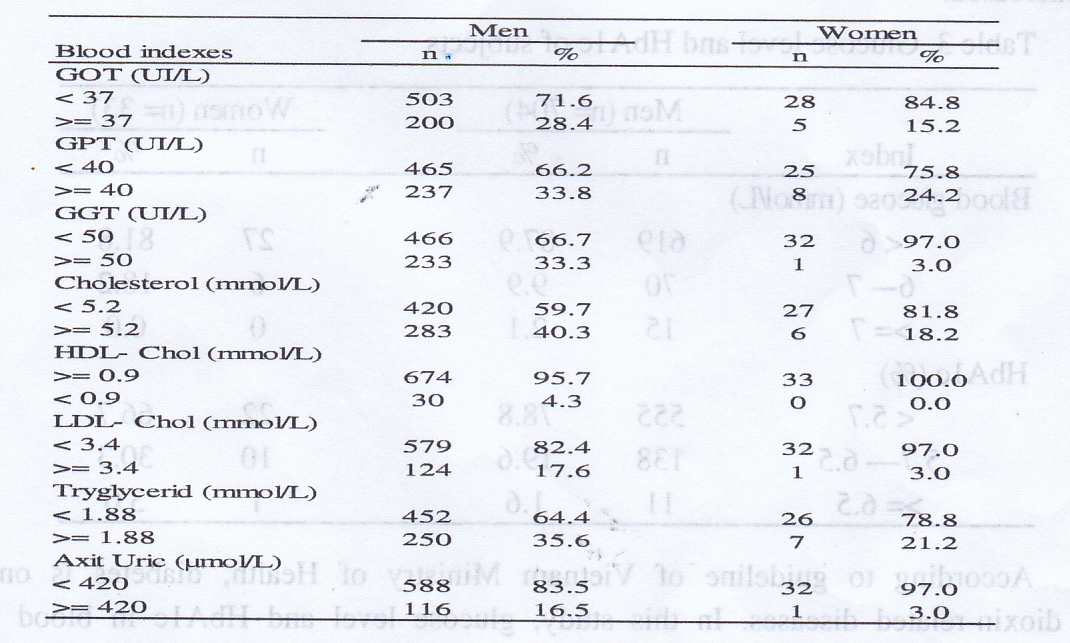 Men Women
Blood indexes n % n %
GOT (UI/L)
< 37 503 71.6 28 84.8
>= 37 200 28.4 5 15.2
GPT (UI/L)
< 40 465 66.2 25 75.8
>= 40 237 33.8 8 24.2
GGT (UI/L)
< 50 466 66.7 32 97.0
>= 50 233 33.3 1 3.0
Cholesterol (mmol/L)
< 5.2 420 59.7 27 81.8
>= 5.2 283 40.3 6 18.2
HDL- Chol (mmol/L)
>= 0.9 674 95.7 33 100.0
< 0.9 30 4.3 0 0.0
LDL- Chol (mmol/L)
< 3.4 579 82.4 32 97.0
>= 3.4 124 17.6 1 3.0
Tryglycerid (mmol/L)
< 1.88 452 64.4 26 78.8
>= 1.88 250 35.6 7 21.2
Axit Uric (µmol/L)
< 420 588 83.5 32 97.0
>= 420 116 16.5 1 3.0